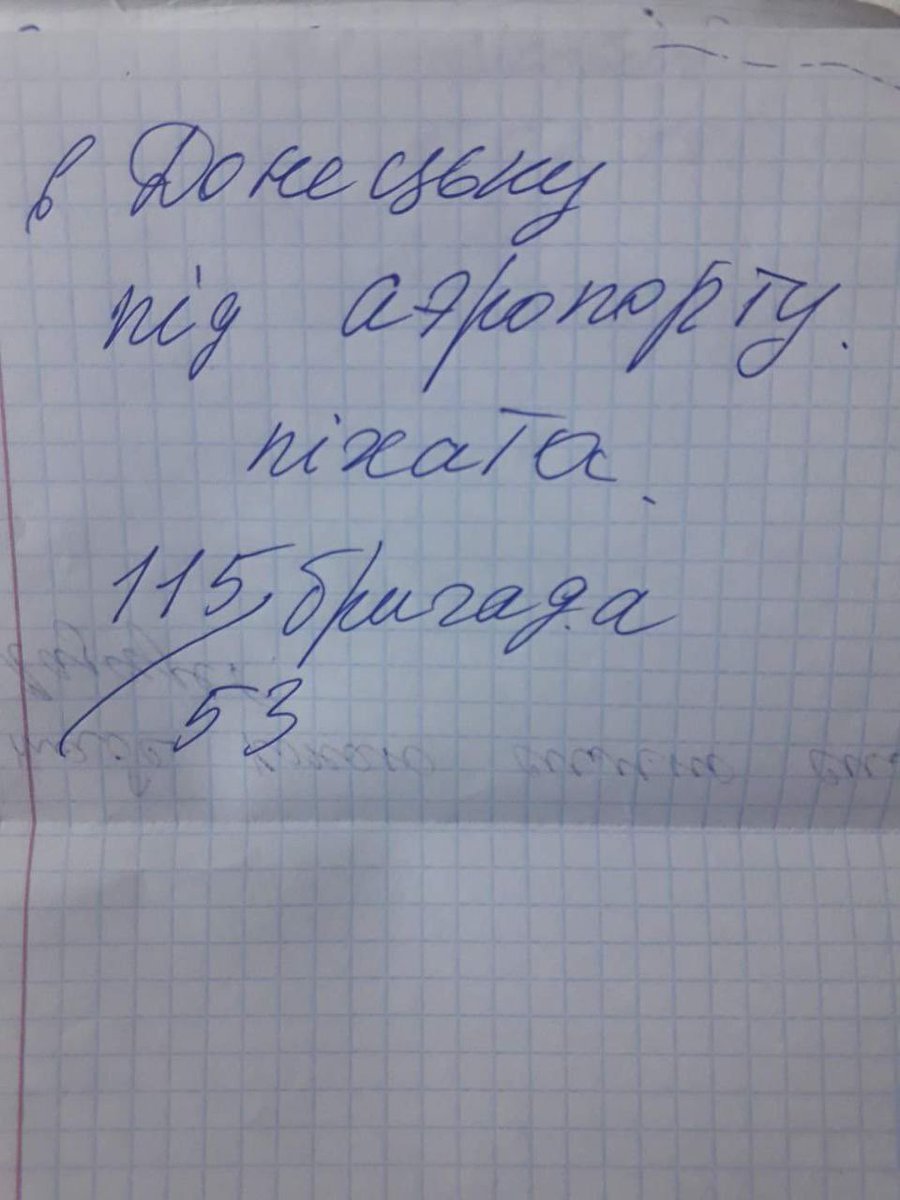 в Донецьку
під аэропорту.
піхата.
115 бригада
53